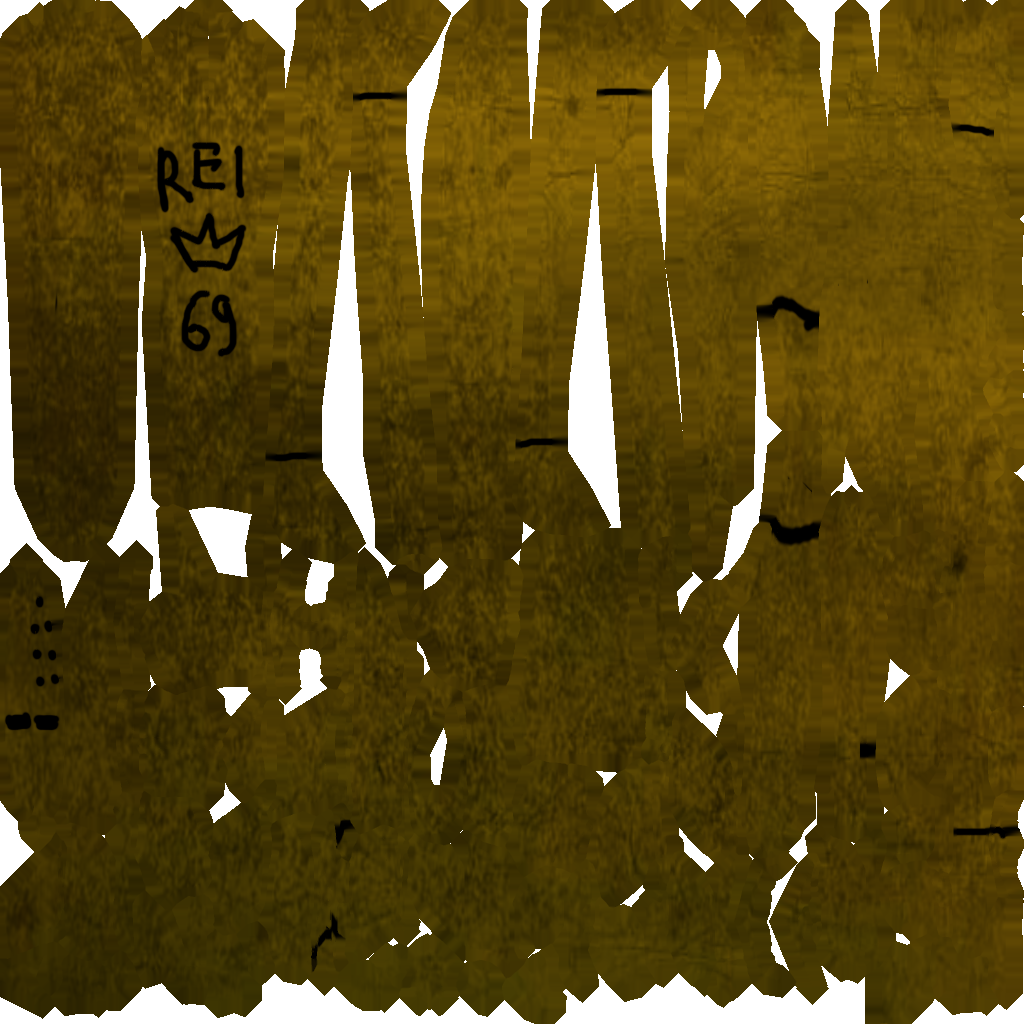 REI
69